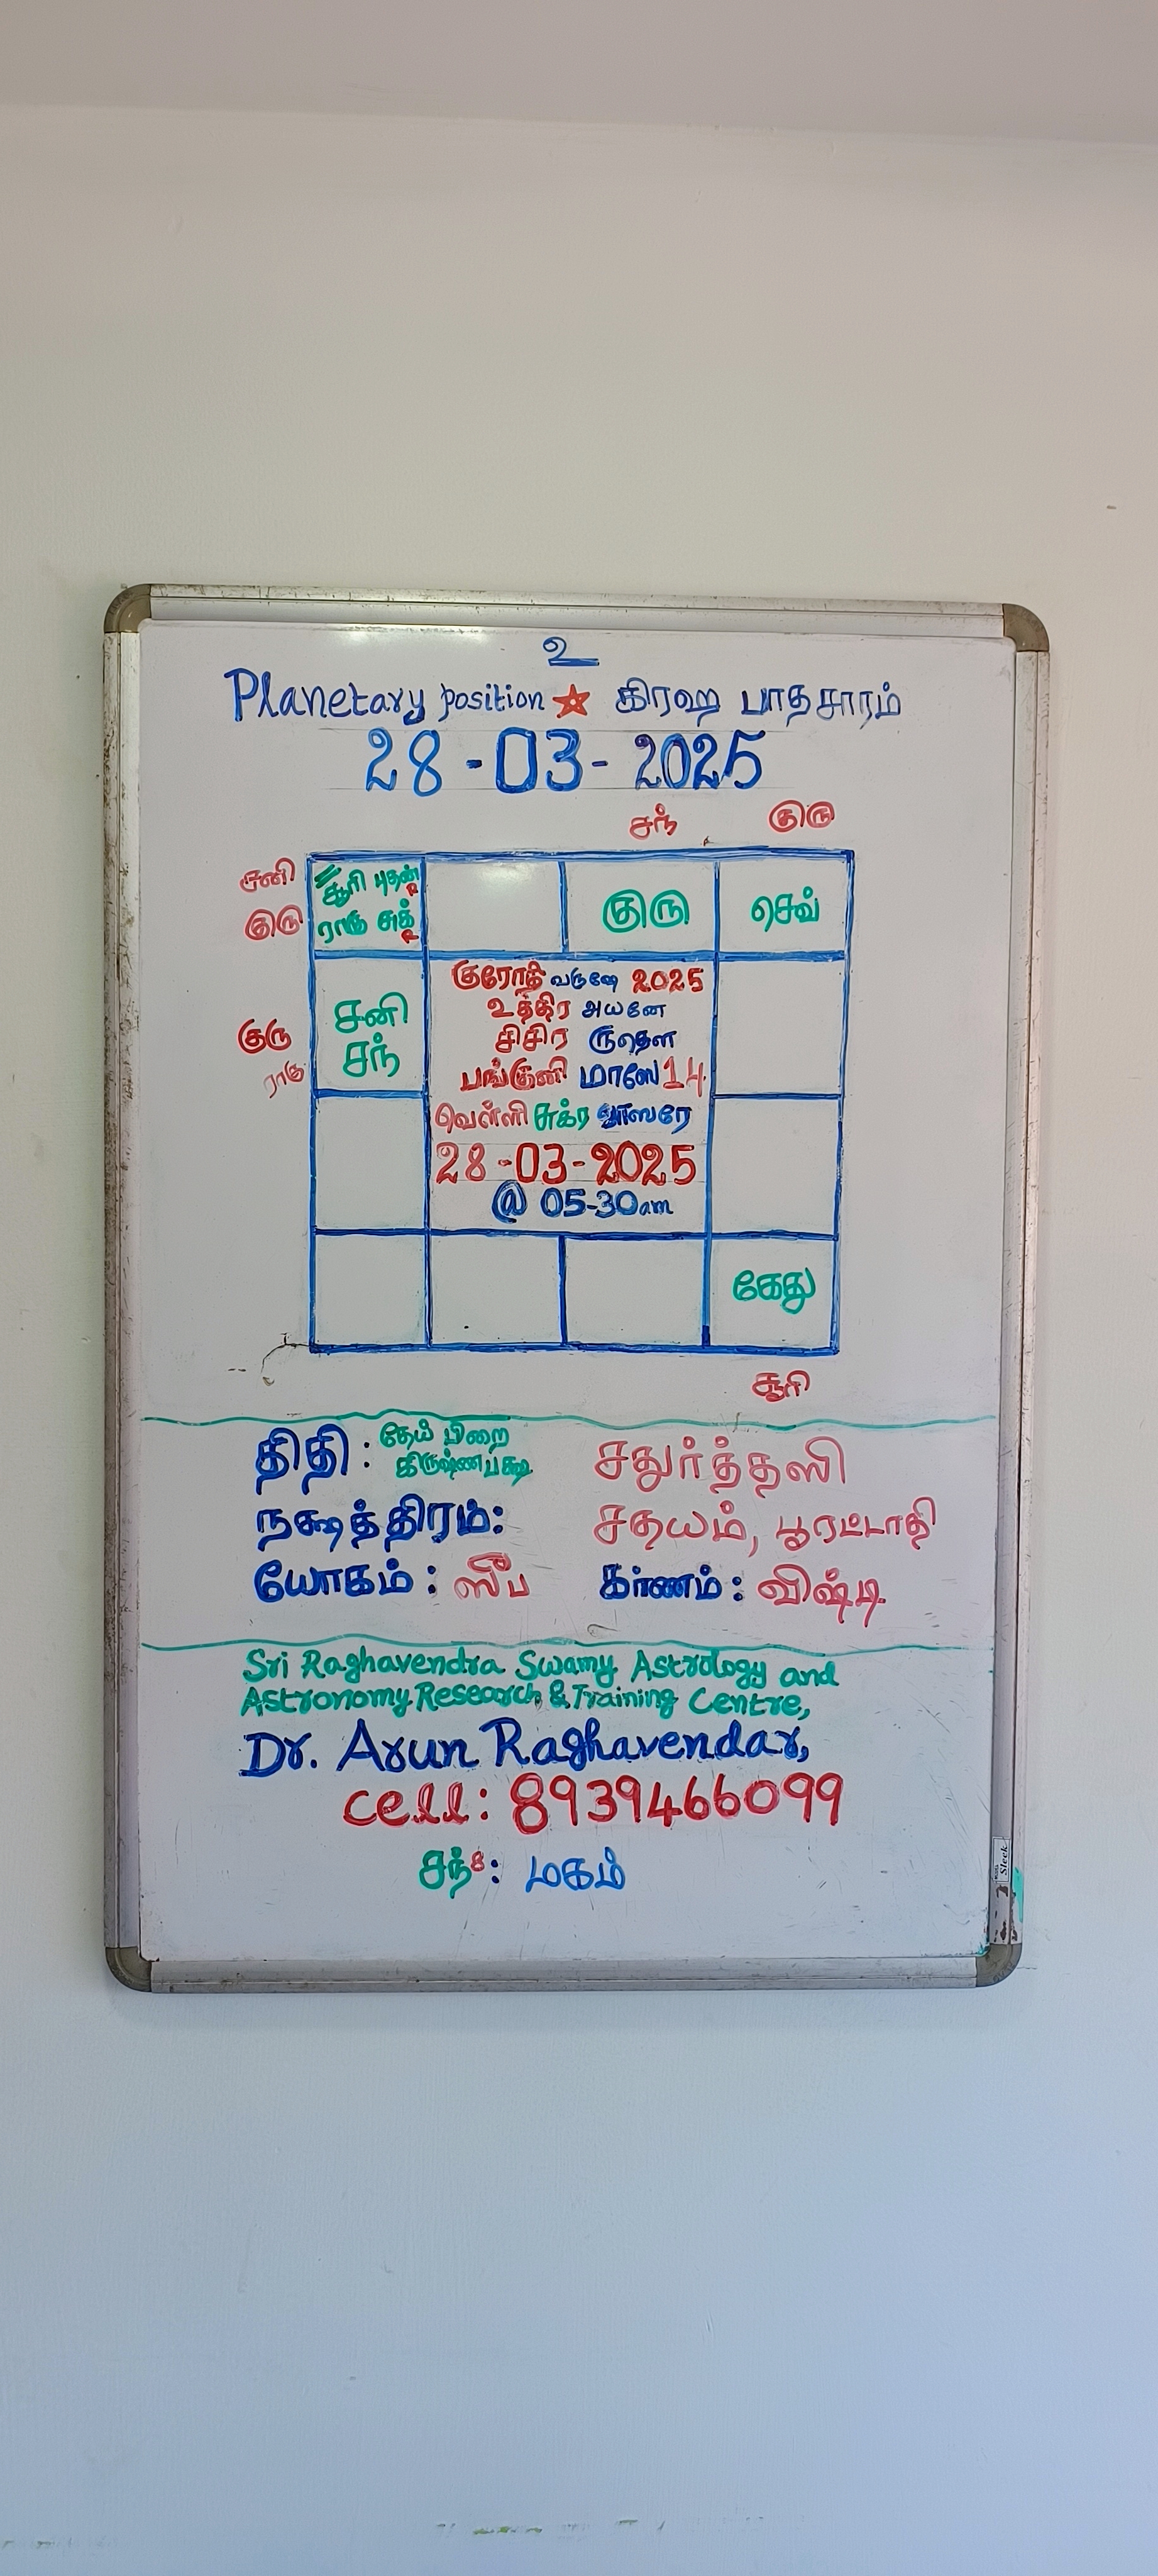 உ
Planetary position கிரஹ பாதசாரம்
28-03-2025
சந் குரு
சனி
குரு
சூரி புதன் R
ராகு சுக் R
குரு செவ்
குரு
ராகு
சனி
சந்
குரோதி வருஷே 2025
உத்திர அயனே
சிசிர ருதௌ
பங்குனி மாஸே 14
வெள்ளி சுக்ர வாஸரே
28-03-2025
@ 05-30am
கேது
சூரி
திதி: தேய் பிறை
கிருஷ்ணபக்ஷ சதுர்த்தஸி
நக்ஷத்திரம்: சதயம், பூரட்டாதி
யோகம்: ஸீப கர்ணம்: விஷ்டி
Sri Raghavendra Swamy Astrology and
Astronomy Research & Training Centre,
Dr. Arun Raghavendar,
cell: 8939466099
சந்8: மகம்
Sleek